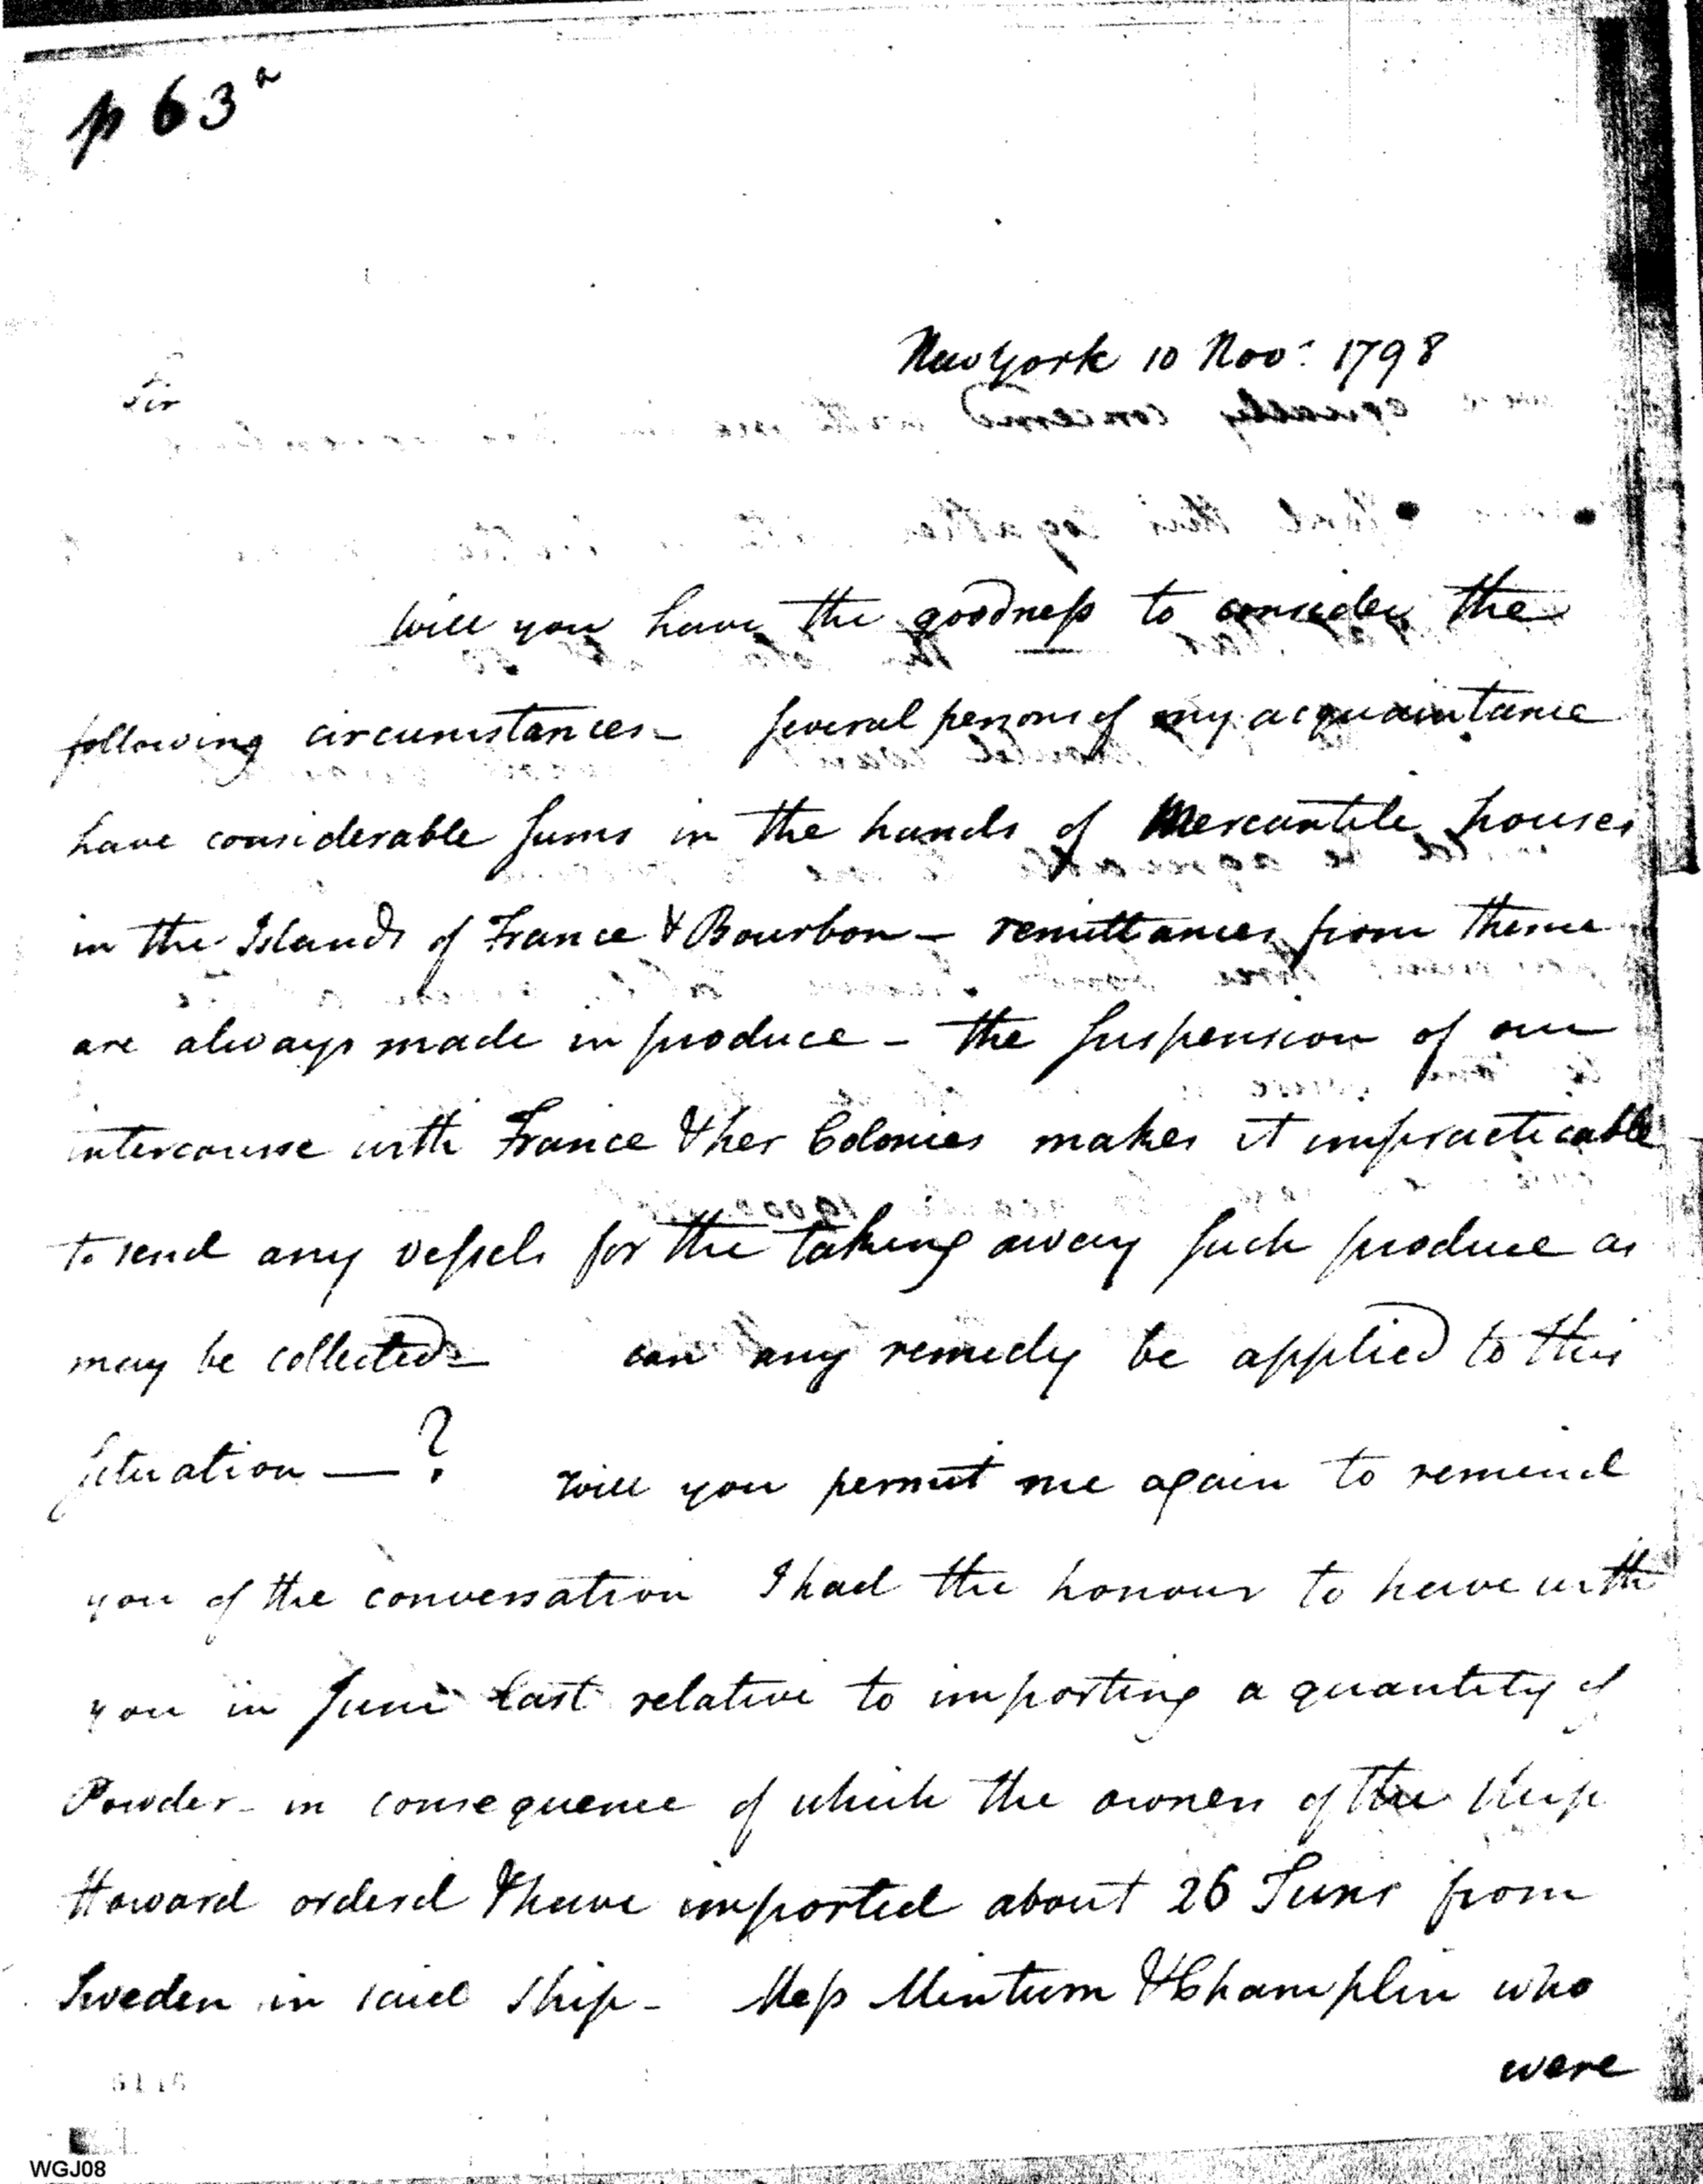 p 63a
New York 10 Nov: 1798
Sir
Will you have the goodness to consider the
following circumstances – several persons of my acquaintance
have considerable sums in the hands of Mercantile houses
in the Islands of France & Bourbon – remittances from thence
are always made in produce – the suspension of our
intercourse with France & her Colonies makes it impracticable
to send any vessels for the taking away such produce as
may be collected – can any remedy be applied to this
situation – ? will you permit me again to remind
you of the conversation I had the honour to have with
you in June last relative to importing a quantity of
Powder – in consequence of which the owners of the ship
Howard orderd & have imported about 26 Tuns from
Sweden in said ship – Mess Minturn & Champlin who
were
WGJ08